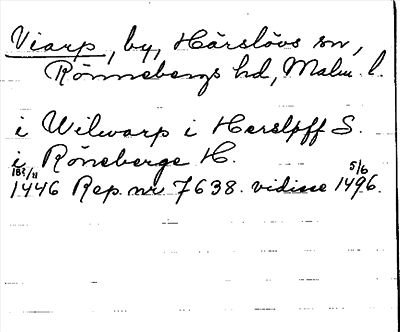 Viarp, by, Härslövs sn,
Rönnebergs hd, Malm. l.
i Wilwarp i Hersløff S.
i Röneberge H.
1446 Rep. nr 7638. vidisse 5/6 1496.